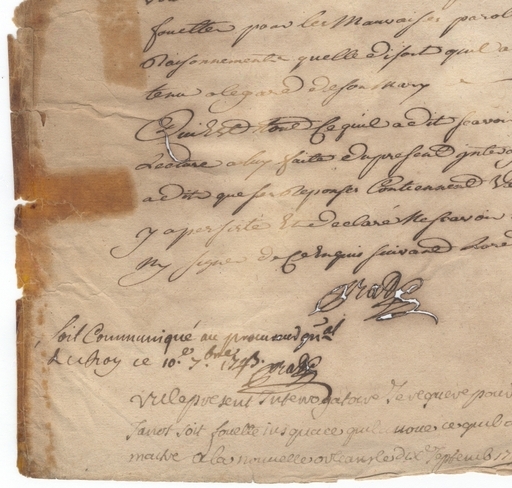 fouetter pour les Mauvaises parol
Raisonnements quelle disoit quil a
tenu a legard de son Mary
Qui est tout ce quil a dit scavoir
Lecture a luy faite du present inter
a dit que ses Reponses Contiennent Ve
y a persisté Et a declaré Ne scavoir
Ny signer de Ce Enquis suivant Lord
Soit Communiqué au procureur gnal
du Roy ce 10.e 7.bre
Vu le present Interrogatoire Je requiere pour
soit fouetté jusqua ce quil nous
maitre a la nouvelle orleans le dix Septemb 17